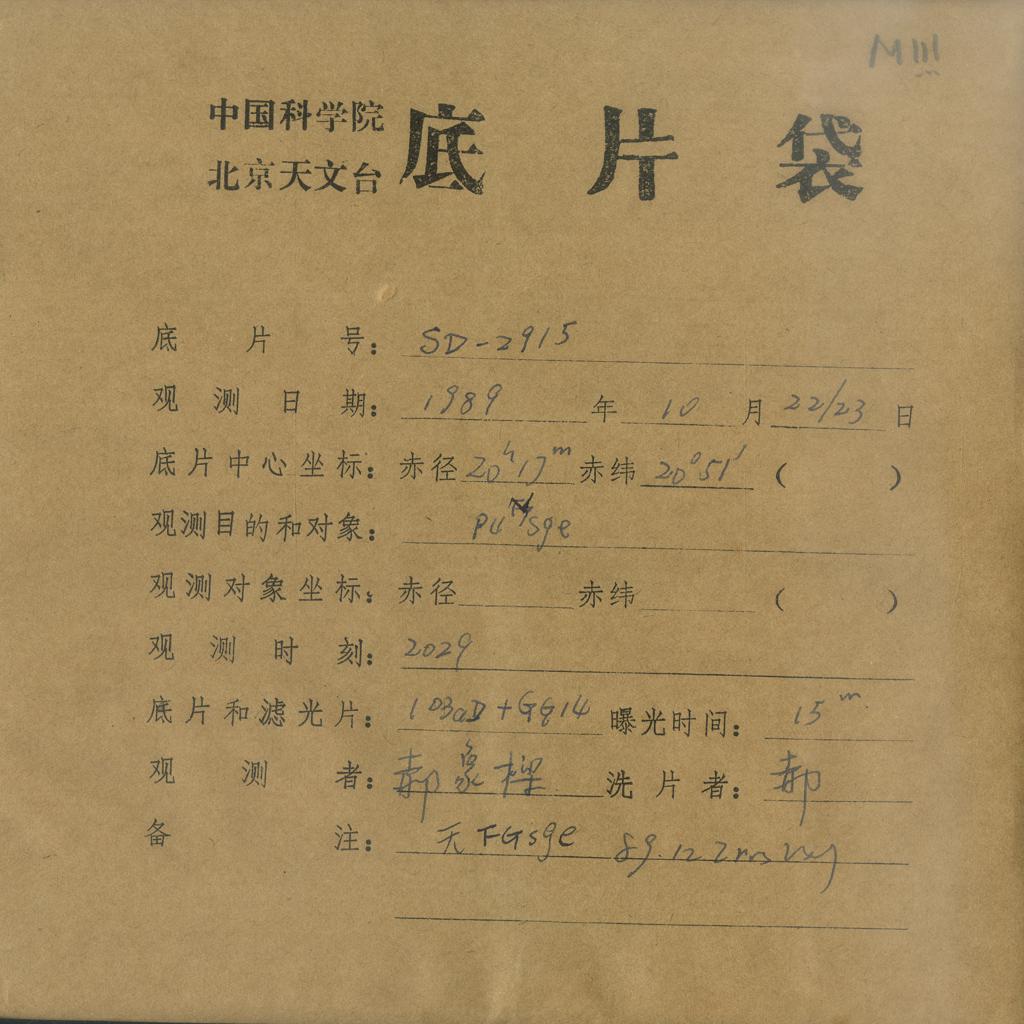 MIII
中国科学院
北京天文台
底片袋
底片号：SD-2915
观测日期：1989年10月22/23日
底片中心坐标：赤径20ʰ17ᵐ赤纬20°51′（ ）
观测目的和对象：PU Sge
观测对象坐标：赤径 赤纬 （ ）
观测时刻：2029
底片和滤光片：103aD+GG14 曝光时间：15ᵐ
观测者：郝象樑 洗片者：郝
备注：天FGsge 89.12